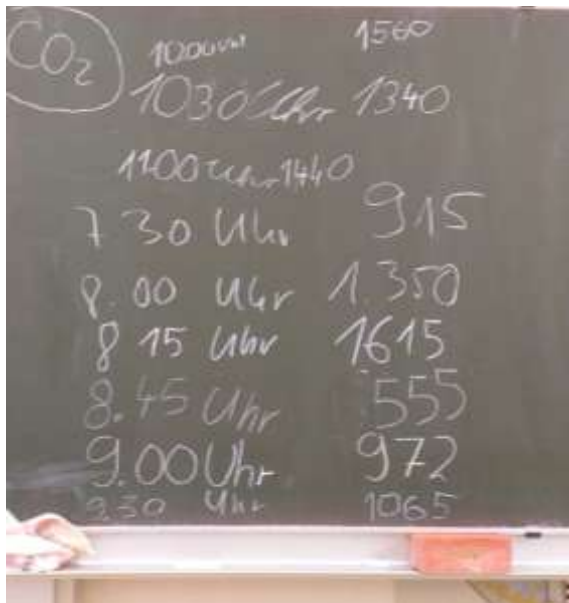 CO2 1000 Uhr 1560
1030 Uhr 1340
1100 Uhr 1440
7 30 Uhr 915
8.00 Uhr 1.350
8 15 Uhr 1615
8.45 Uhr 555
9.00 Uhr 972
9.30 Uhr 1065